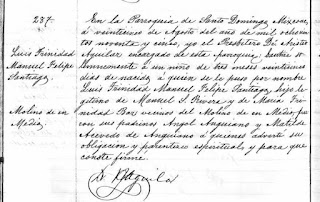 237.
Luis Trinidad
Manuel Felipe
Santiago
Molino de en
Medio
En la Parroquia de Santo Domingo Mixcoac
á veintiseis de Agosto del año de mil ochocien
tos noventa y cinco, yo el Presbítero Dn.
Aguilar encargado de esta Parroquia, bautisé so
lemnemente á un niño de tres meses veintiun
dias de nacido, á quien se le puso por nombre
Luis Trinidad Manuel Felipe Santiago, hijo le
gitimo de Manuel S. Rivera y de Maria Tri
nidad vecinos del Molino de en Medio, fue
ron sus padrinos Angel Anguiano y Matilde
Acevedo de Anguiano á quienes advertí su
obligacion y parentesco espiritual; y para que
conste firmé.
Aguilar